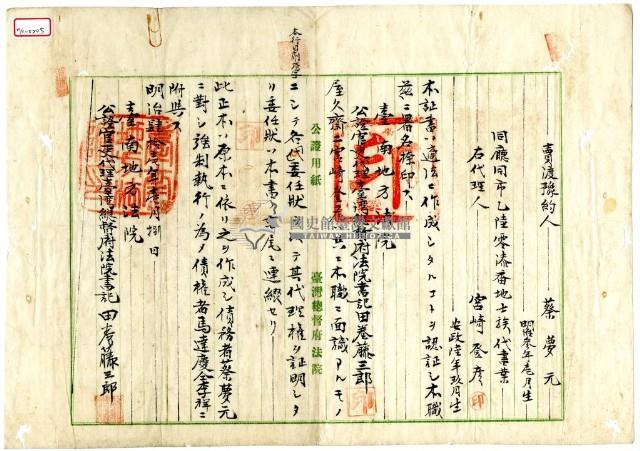 賣渡豫約人 蔡夢元
明治參年壱月生
同廳同市乙陸零湊番地士族代書業
右代理人 宮崎登彦 印
安政陸年玖月生
本証書ハ適法ニ作成シタルコトヲ認証シ本職
茲ニ署名捺印ス
臺南地方法院
公證官吏代理臺灣總督府法院書記 田巻藤三郎
ニ本職ニ面識アルモノ
本行
ニシテ各
委任状
テ其代理権ヲ証明シタ
リ委任状ハ本書ノ
尾ニ連綴セリ
公證用紙 臺灣總督府法院
此正本ハ原本ニ依リ之ヲ作成シ債務者蔡夢元
ニ對シ強制執行ノ為メ債權者馬達慶余李祥ニ
附與ス
明治肆拾
年壱月捌日
臺南地方法院
公證官吏代理臺灣總督府法院書記 田巻藤三郎
國史館臺灣文獻館
TAIWAN HISTORICA